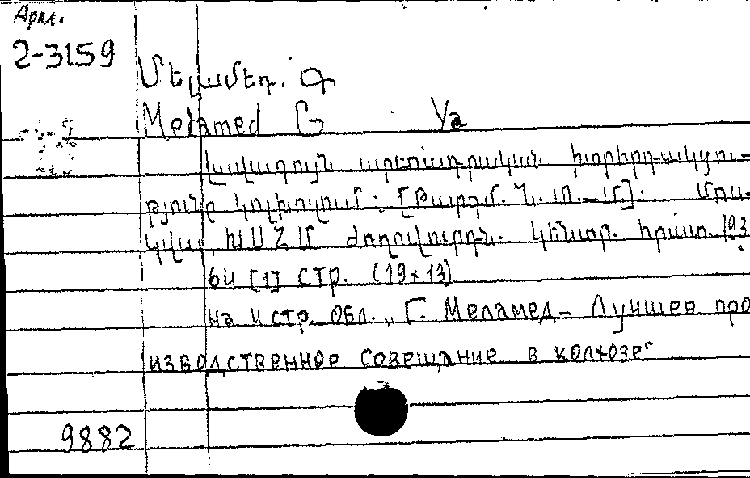 Аркл.
2-3159
Մելամեդ. Գ
Melamed G Ya
Լավագույն արտադրական խորհրդակցու-
թյունը կոլխոզում : [Թարգմ. Ն. Մ. – Մ]. Մոս-
կվա ԽՍՀՄ ժողովուրդն. կենտր. հրատ. 193
64 [1] стр. (19×13)
на 4 стр. обл. „Г. Меламед – Лучшее про
изводственное совещание в колхозе"
9882